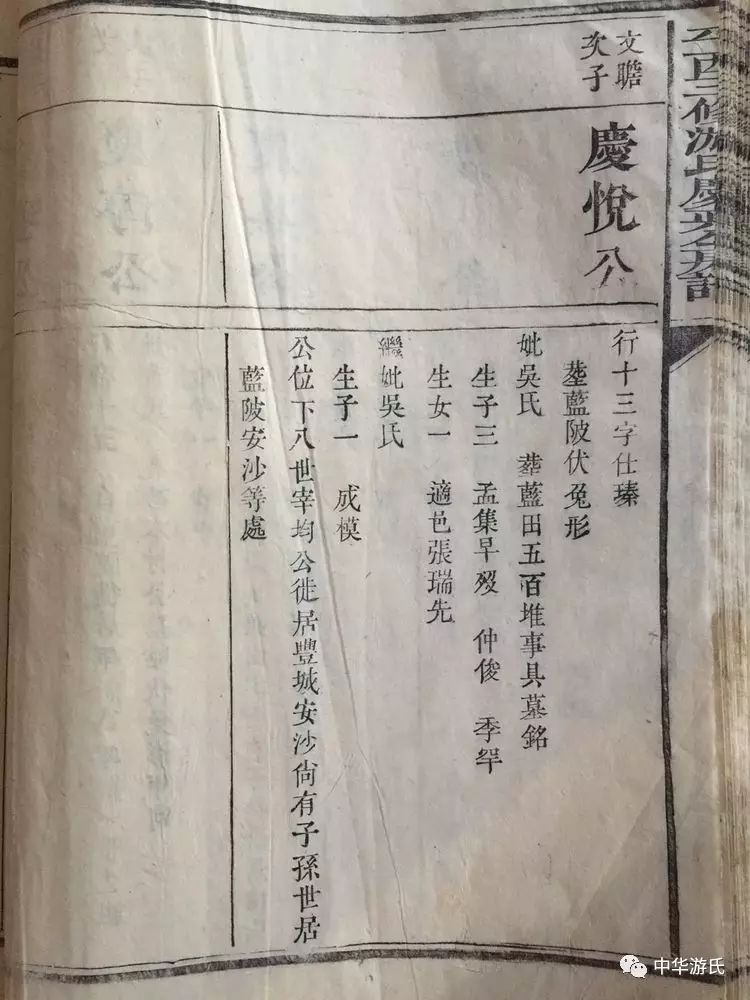 修游氏慶
公房譜
文瞻
次子
慶悅公
行十三字仕瑧
塟藍陂伏兔形
妣吳氏　塟藍田五百堆事具墓銘
生子三　孟集早歿　仲俊　季罕
生女一　適邑張瑞先
繼妣吳氏
生子一　成模
公位下八世宰均公徙居豐城安沙尙有子孫世居
藍陂安沙等處
中华游氏